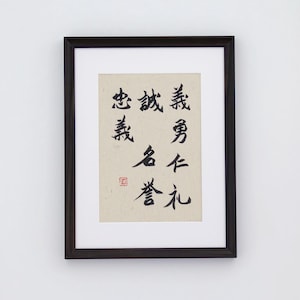 義勇仁礼
誠名誉
忠義